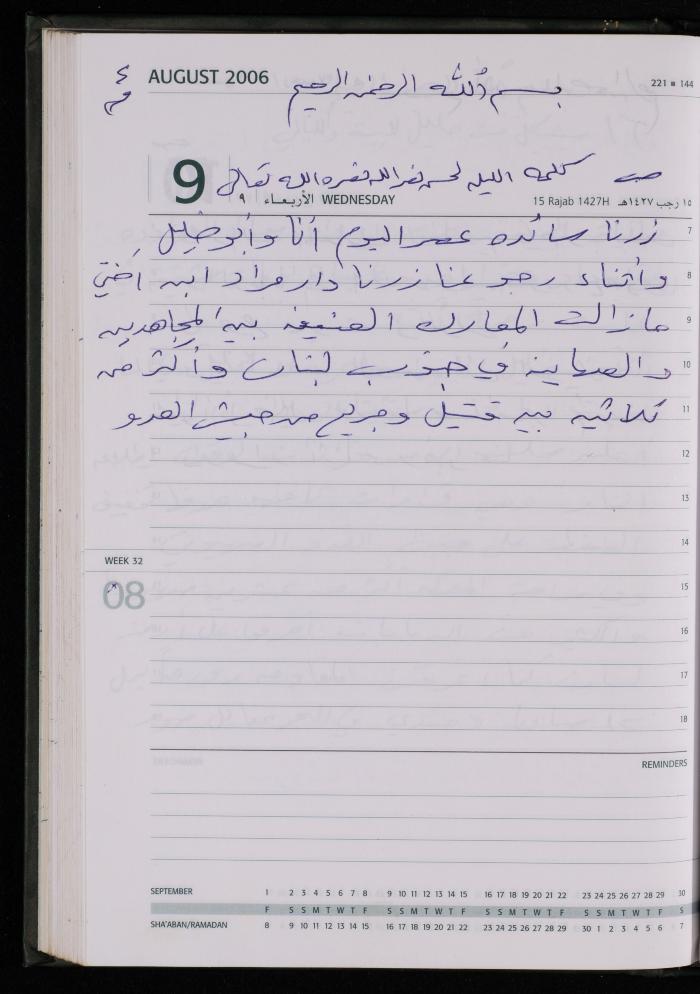 AUGUST 2006
بسم الله الرحمن الرحيم
221 ■ 144
كلمة الليلة لحسن نصر الله نصره الله تعالى
9
٩ الأربعاء WEDNESDAY
15 Rajab 1427H ١٥ رجب ١٤٢٧هـ
زرنا سائده عصر اليوم أنا وأبو خليل 7
وأثناء رجوعنا زرنا دار مراد ابن أختي 8
ما زالت المعارك العنيفة بين المجاهدين 9
والصهاينة في جنوب لبنان وأكثر من 10
ثلاثين بين قتيل وجريح من جيش العدو 11
12
13
14
WEEK 32
08
15
16
17
18
REMINDERS
SEPTEMBER 1 2 3 4 5 6 7 8 9 10 11 12 13 14 15 16 17 18 19 20 21 22 23 24 25 26 27 28 29 30
F S S M T W T F S S M T W T F S S M T W T F S S M T W T F S
SHA'ABAN/RAMADAN 8 9 10 11 12 13 14 15 16 17 18 19 20 21 22 23 24 25 26 27 28 29 30 1 2 3 4 5 6 7